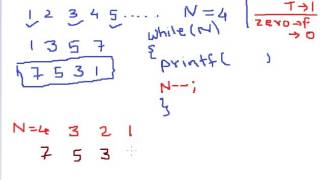 1 2 3 4 5 ..... N=4
1 3 5 7
7 5 3 1
while(N)
{
printf( )
N--;
}
T→1
zero→F
→0
N=4 3 2 1
7 5 3